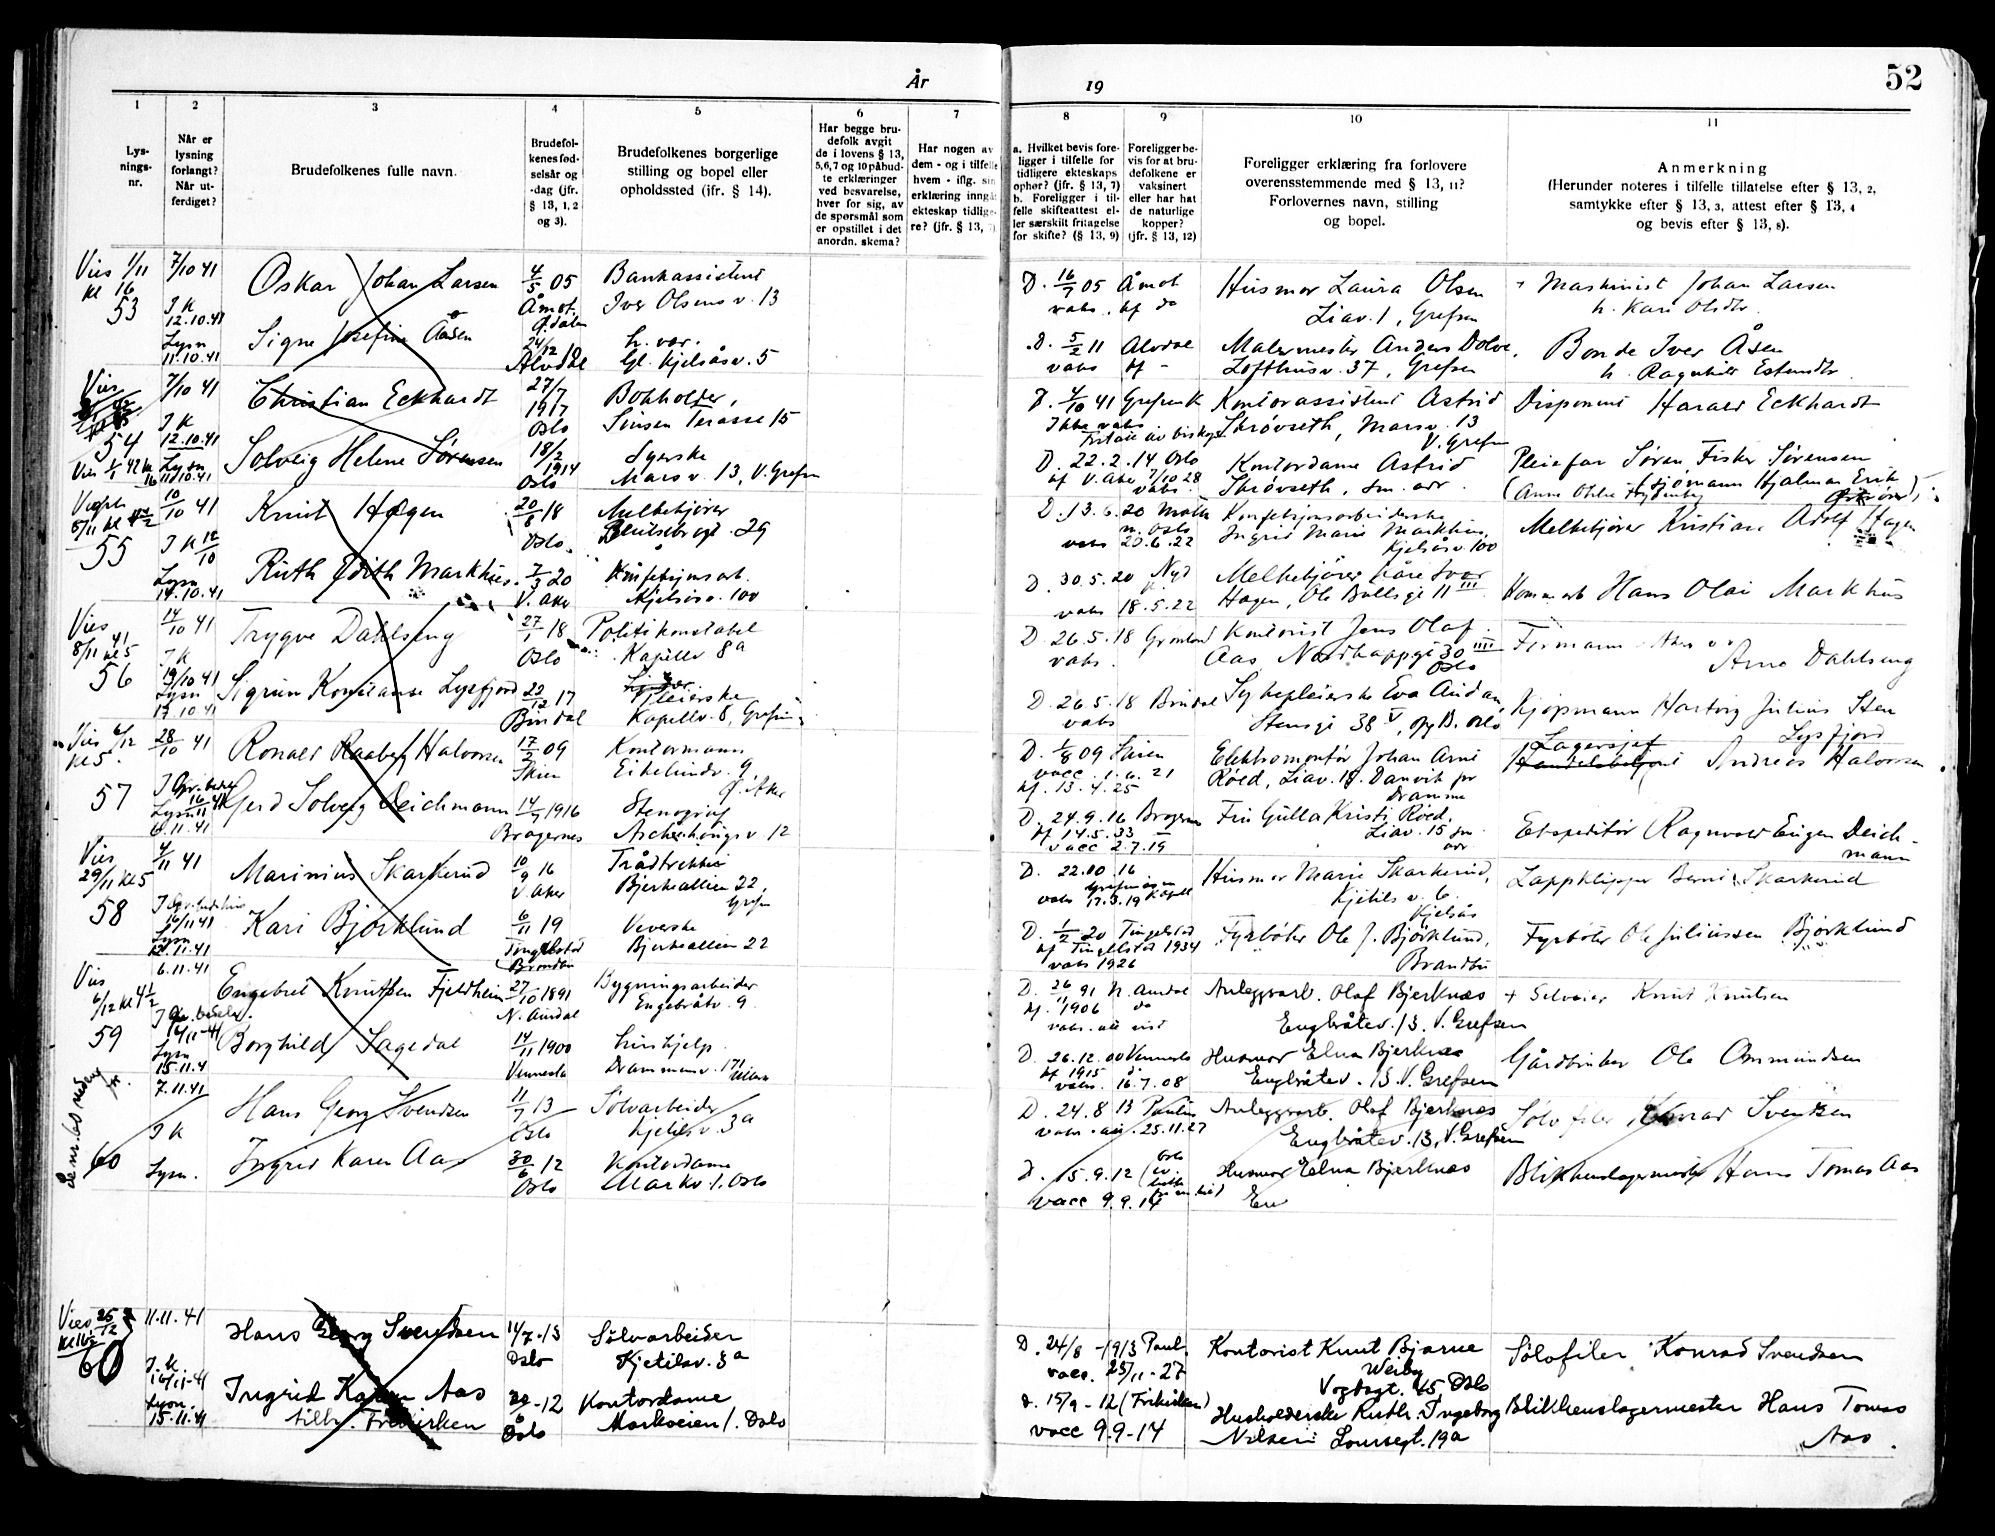 52
År
19
1
2
3
4
5
6
7
8
9
10
11
Lys-
nings-
nr.
Når er
lysning
forlangt?
Når ut-
ferdiget?
Brudefolkenes fulle navn.
Brudefol-
kenes fød-
selsår og
-dag (jfr.
§ 13, 1, 2
og 3).
Brudefolkenes borgerlige
stilling og bopel eller
opholdssted (ifr. § 14).
Har begge bru-
defolk avgit
de i lovens § 13,
5,6,7 og 10 påbud-
te erklæringer
ved besvarelse,
hver for sig, av
de spørsmål som
er opstillet i det
anordn. skema?
Har nogen av
dem - og i tilfelle
hvem - iflg. sin
erklæring inngå
ekteskap tidlige-
re? (jfr. § 13, 7)
a. Hvilket bevis fore-
ligger i tilfelle for
tidligere ekteskaps
ophør? (jfr. § 13, 7)
b. Foreligger i til-
felle skifteattest el-
ler særskilt fritagelse
for skifte? (§ 13, 9)
Foreligger be-
vis for at bru-
defolkene er
vaksinert
eller har hat
de naturlige
kopper?
(jfr. § 13, 12)
Foreligger erklæring fra forlovere
overensstemmende med § 13, 11?
Forlovernes navn, stilling
og bopel.
Anmerkning
(Herunder noteres i tilfelle tillatelse efter § 13, 2,
samtykke efter § 13, 3, attest efter § 13, 4
og bevis efter § 13, 8).
Vies 1/11
kl 16
53
7/10 41
I K
12.10.41
Lysn
11.10.41
Oskar Johan Larsen
4/5 05
Åmot
Bankassistent
Iver Olsens v. 13
D. 16/7 05 Åmot
vaks. kf do
Husmor Laura Olsen
Liav. 1, Grefsen
+ Maskinist Johan Larsen
h. Kari Olsdtr.
Signe Josefine Åsen
24/12
Alvdal
h. var.
Gl. Kjelsåsv. 5
D. 5/2 11 Alvdal
vaks kf -
Malermester Anders Dolve,
Lofthusv. 37, Grefsen
Bonde Iver Åsen
Vies
54
7/10 41
I K
12.10.41
Lysn
11.10.41
Christian Eckhardt
27/7
1917
Oslo
Bokholder,
Sinsen Terasse 15
D. 4/10 41 Grefsen K
Ikke vaks
Kontorassistent Astrid
Skrøvseth, Marsv. 13
V. Grefsen
Disponent Harald Eckhardt
Solveig Helene Sørensen
18/2
1914
Oslo
Syerske
Marsv. 13, V. Grefsen
D. 22.2.14 Oslo
kf V. Aker 7/10 28
vaks.
Kontordame Astrid
Skrøvseth, sm. adr.
Pleiefar Søren Fisker Sørensen
(Sjømann Hjalmar Erik
55
10/10 41
I K 12/10
Lysn
14.10.41
Knut Hagen
20/8 18
Oslo.
Melkekjører
29
D. 13.6.20
vaks 20.6.22
Konfeksjonsarbeiderske
Ingrid Marie Markhus,
Kjelsåsv. 100
Melkekjører Kristian Adolf Hagen
Ruth Edith Markhus.
7/3 20
V. Aker
Konfeksjonsarb.
Kjelsåsv. 100
D. 30.5.20 Nyd
vaks 18.5.22
Melkekjører Kåre Ivar
Hagen, Ole Bullsgt 11 III
Hans Olai Markhus
Vies
8/11 41 kl 5
56
14/10 41
I K
19/10 41
Lysn
17.10.41
Trygve Dahlseng
27/1 18
Oslo
Politikonstabel
Kapellv. 8a
D. 26.5.18 Grønland
vaks.
Kontorist Jens Olaf
Aas, Nordkappgt 30 IIII
Oslo
Formann
Arne Dahlseng
Sigrun Konstanse Lysfjord
22/12 17
Bindal
Pleierske
Kapellv. 8, Grefsen
D. 26.5.18 Bindal
vaks
Sykepleierske Eva Audan,
Stensgt 38 V, opg B. Oslo
Kjøpmann Hartvig Julius Sten
Lysfjord
Vies 6/12
kl 5.
57
28/10 41
16/11 41
Lysn
6.11.41
Ronald Raaberg Halvorsen
17/2 09
Skien
Kontormann
Eikelundv. 9,
V. Aker
D. 1/8 09 Skien
vacc. 1.6.21
kf. 13.4.25
Elektromontør Johan Arni
Røed, Liav. 15. Danvik pr
Drammen
Lagersjef
Andreas Halvorsen
Gerd Solveig Deichmann
14/7 1916
Bragernes
Stenograf
Aschehougsv. 12
D. 24.9.16 Bragernes
kf 14.5.33
vacc 2.7.19
Fru Gulla Kristi Røed,
Liav. 15 sm.
adr
Ekspeditør Ragnvald Eugen Deich-
mann
Vies
29/11 kl 5
58
4/11 41
16/11 41
Lysn
12.11.41
Marinius Skarkerud
10/9 16
V. Aker
Trådtrekker
Bjerkealleen 22,
Grefsen
D. 22.10.16
vaks 17.3.19
Husmor Marie Skarkerud,
Kjetils v. 6
Kjelsås
Lappklipper Berni Skarkerud
Kari Bjørklund
6/11 19
Tingelstad
Brandbu
Veverske
Bjerkealleen 22
D. 1/2 20 Tingelstad
kf Tingelstad 1934
vaks 1926
Fyrbøter Ole J. Bjørklund,
Brandbu
Fyrbøter Ole Juliussen Bjørklund
Vies
6/12 kl 4 1/2
59
6.11.41
16/11-41
Lysn
15.11.41
Engebret Knutsen Fjeldheim
27/10 1891
N. Aurdal
Bygningsarbeider
Engebråtv. 9
D. 26/11 91 N. Aurdal
kf. 1906 do
vaks. att. vist
Anleggsarb. Olaf Bjerknæs
Engbråtev. 13. V. Grefsen
+ Selveier Knut Knutsen
Borghild Sagedal
14/11 1900
Vennesla
hushjelp.
Drammensv. 171
Ullern
D. 26.12.00 Vennesla
kf 1915
vaks. 16.7.08
Husmor Elna Bjerknæs
Engbråtev. 13. V. Grefsen
Gårdbruker Ole Ommundsen
Se nr. 60 nedenfor.
60
7.11.41
I K
Lysn.
Hans Georg Svendsen
11/7 13
Oslo
Sølvarbeider
Kjetilsv. 3a
D. 24.8 13 Paulus
vaks. att. 25.11.27
Anleggsarb. Olaf Bjerknæs
Engbråtev. 13, V. Grefsen
Sølvfiler Konrad Svendsen
Ingrid Karen Aas
30/6 12
Oslo
Kontordame
Markv. 1. Oslo
D. 15.9.12
vacc 9.9.14
Husmor Elna Bjerknæs
En
Blikkenslagermester Hans Tomas Aas
Vies 26/12
60
11.11.41
I. K
16/11-41
Lysn.
15.11.41
Hans Georg Svendsen
11/7-13
Oslo
Sølvarbeider
Kjetilsv. 3a
D. 24/8 - 1913 Paul.
vacc. 25/11 - 27
Kontorist Knut Bjarne
Weiby
Vogtsgt. 45 Oslo
Sølvfiler Konrad Svendsen
Ingrid Karen Aas
tilh. Frikirken
30/6-12
Oslo
Kontordame
Markveien 1. Oslo
d. 15/9 - 12 (Frikirken)
vacc 9.9-14
Husholderske Ruth Ingeborg
Nilsen 19a
Blikkenslagermester Hans Tomas
Aas.